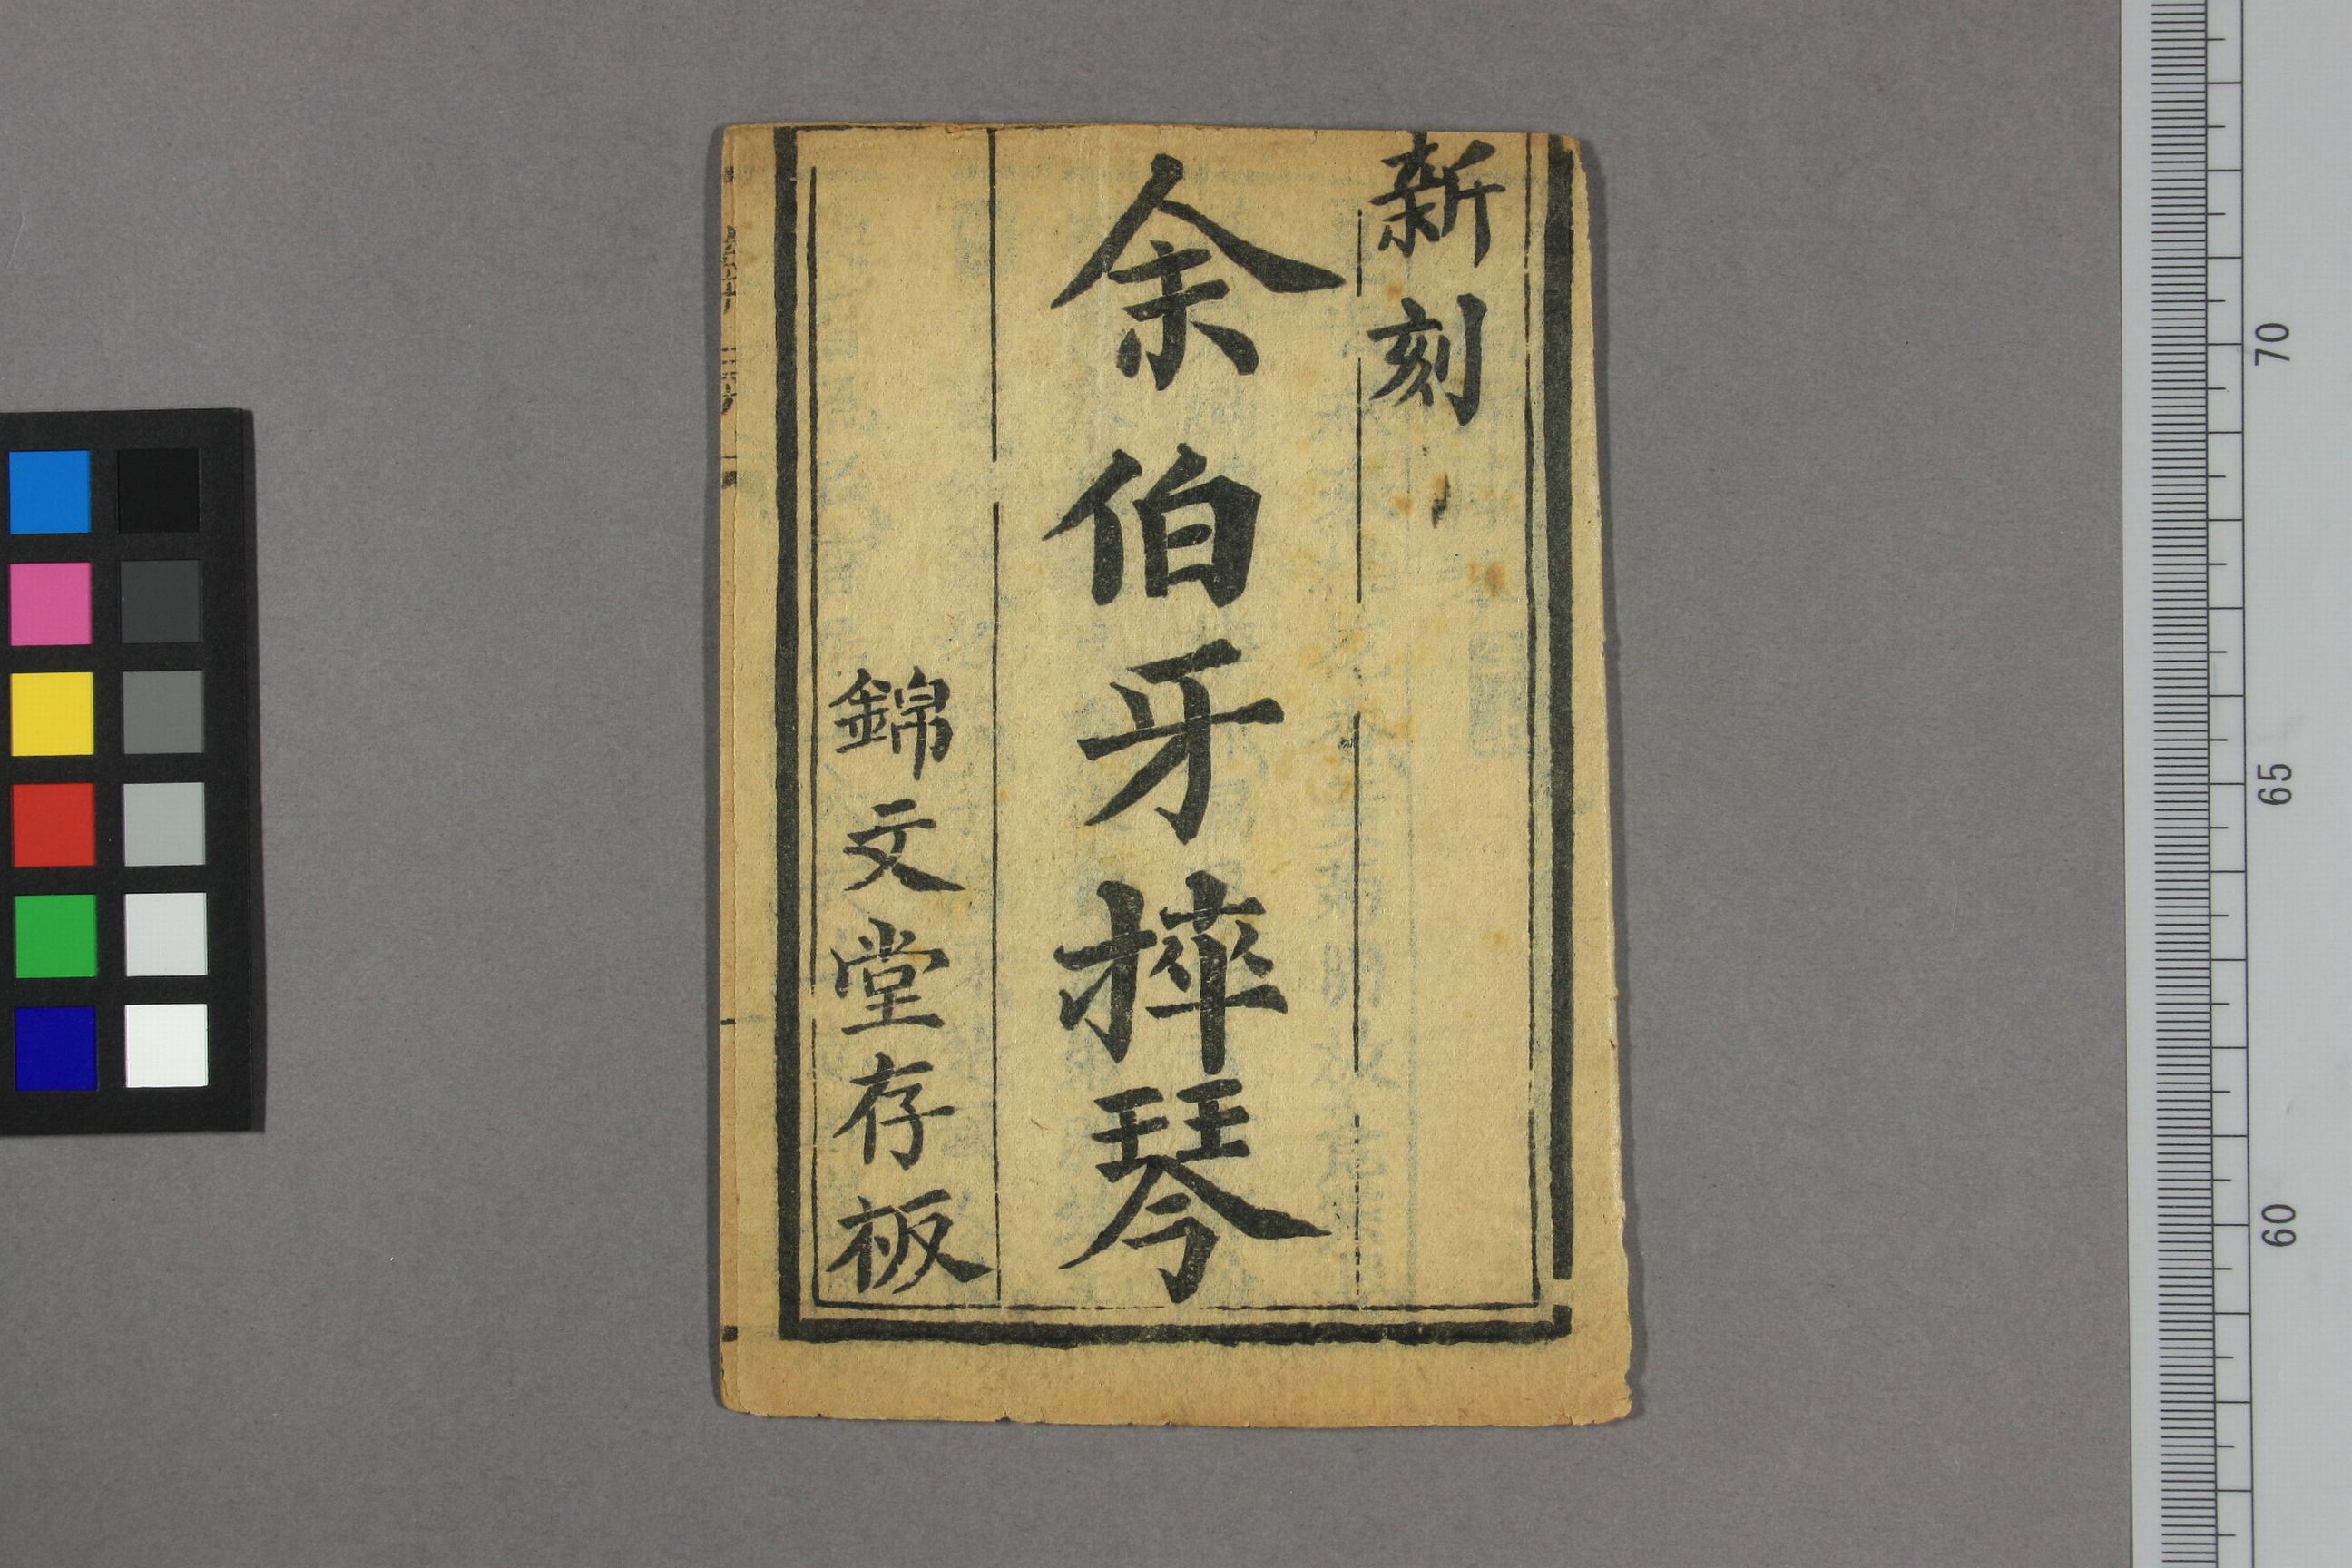 新刻
余伯牙摔琴
錦文堂存板
70
65
60